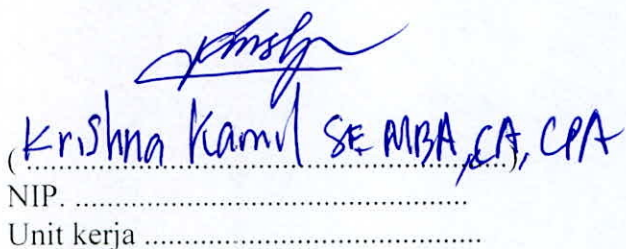 (Krishna Kamil SE MBA, CA, CPA)
NIP. ................................................
Unit kerja ........................................